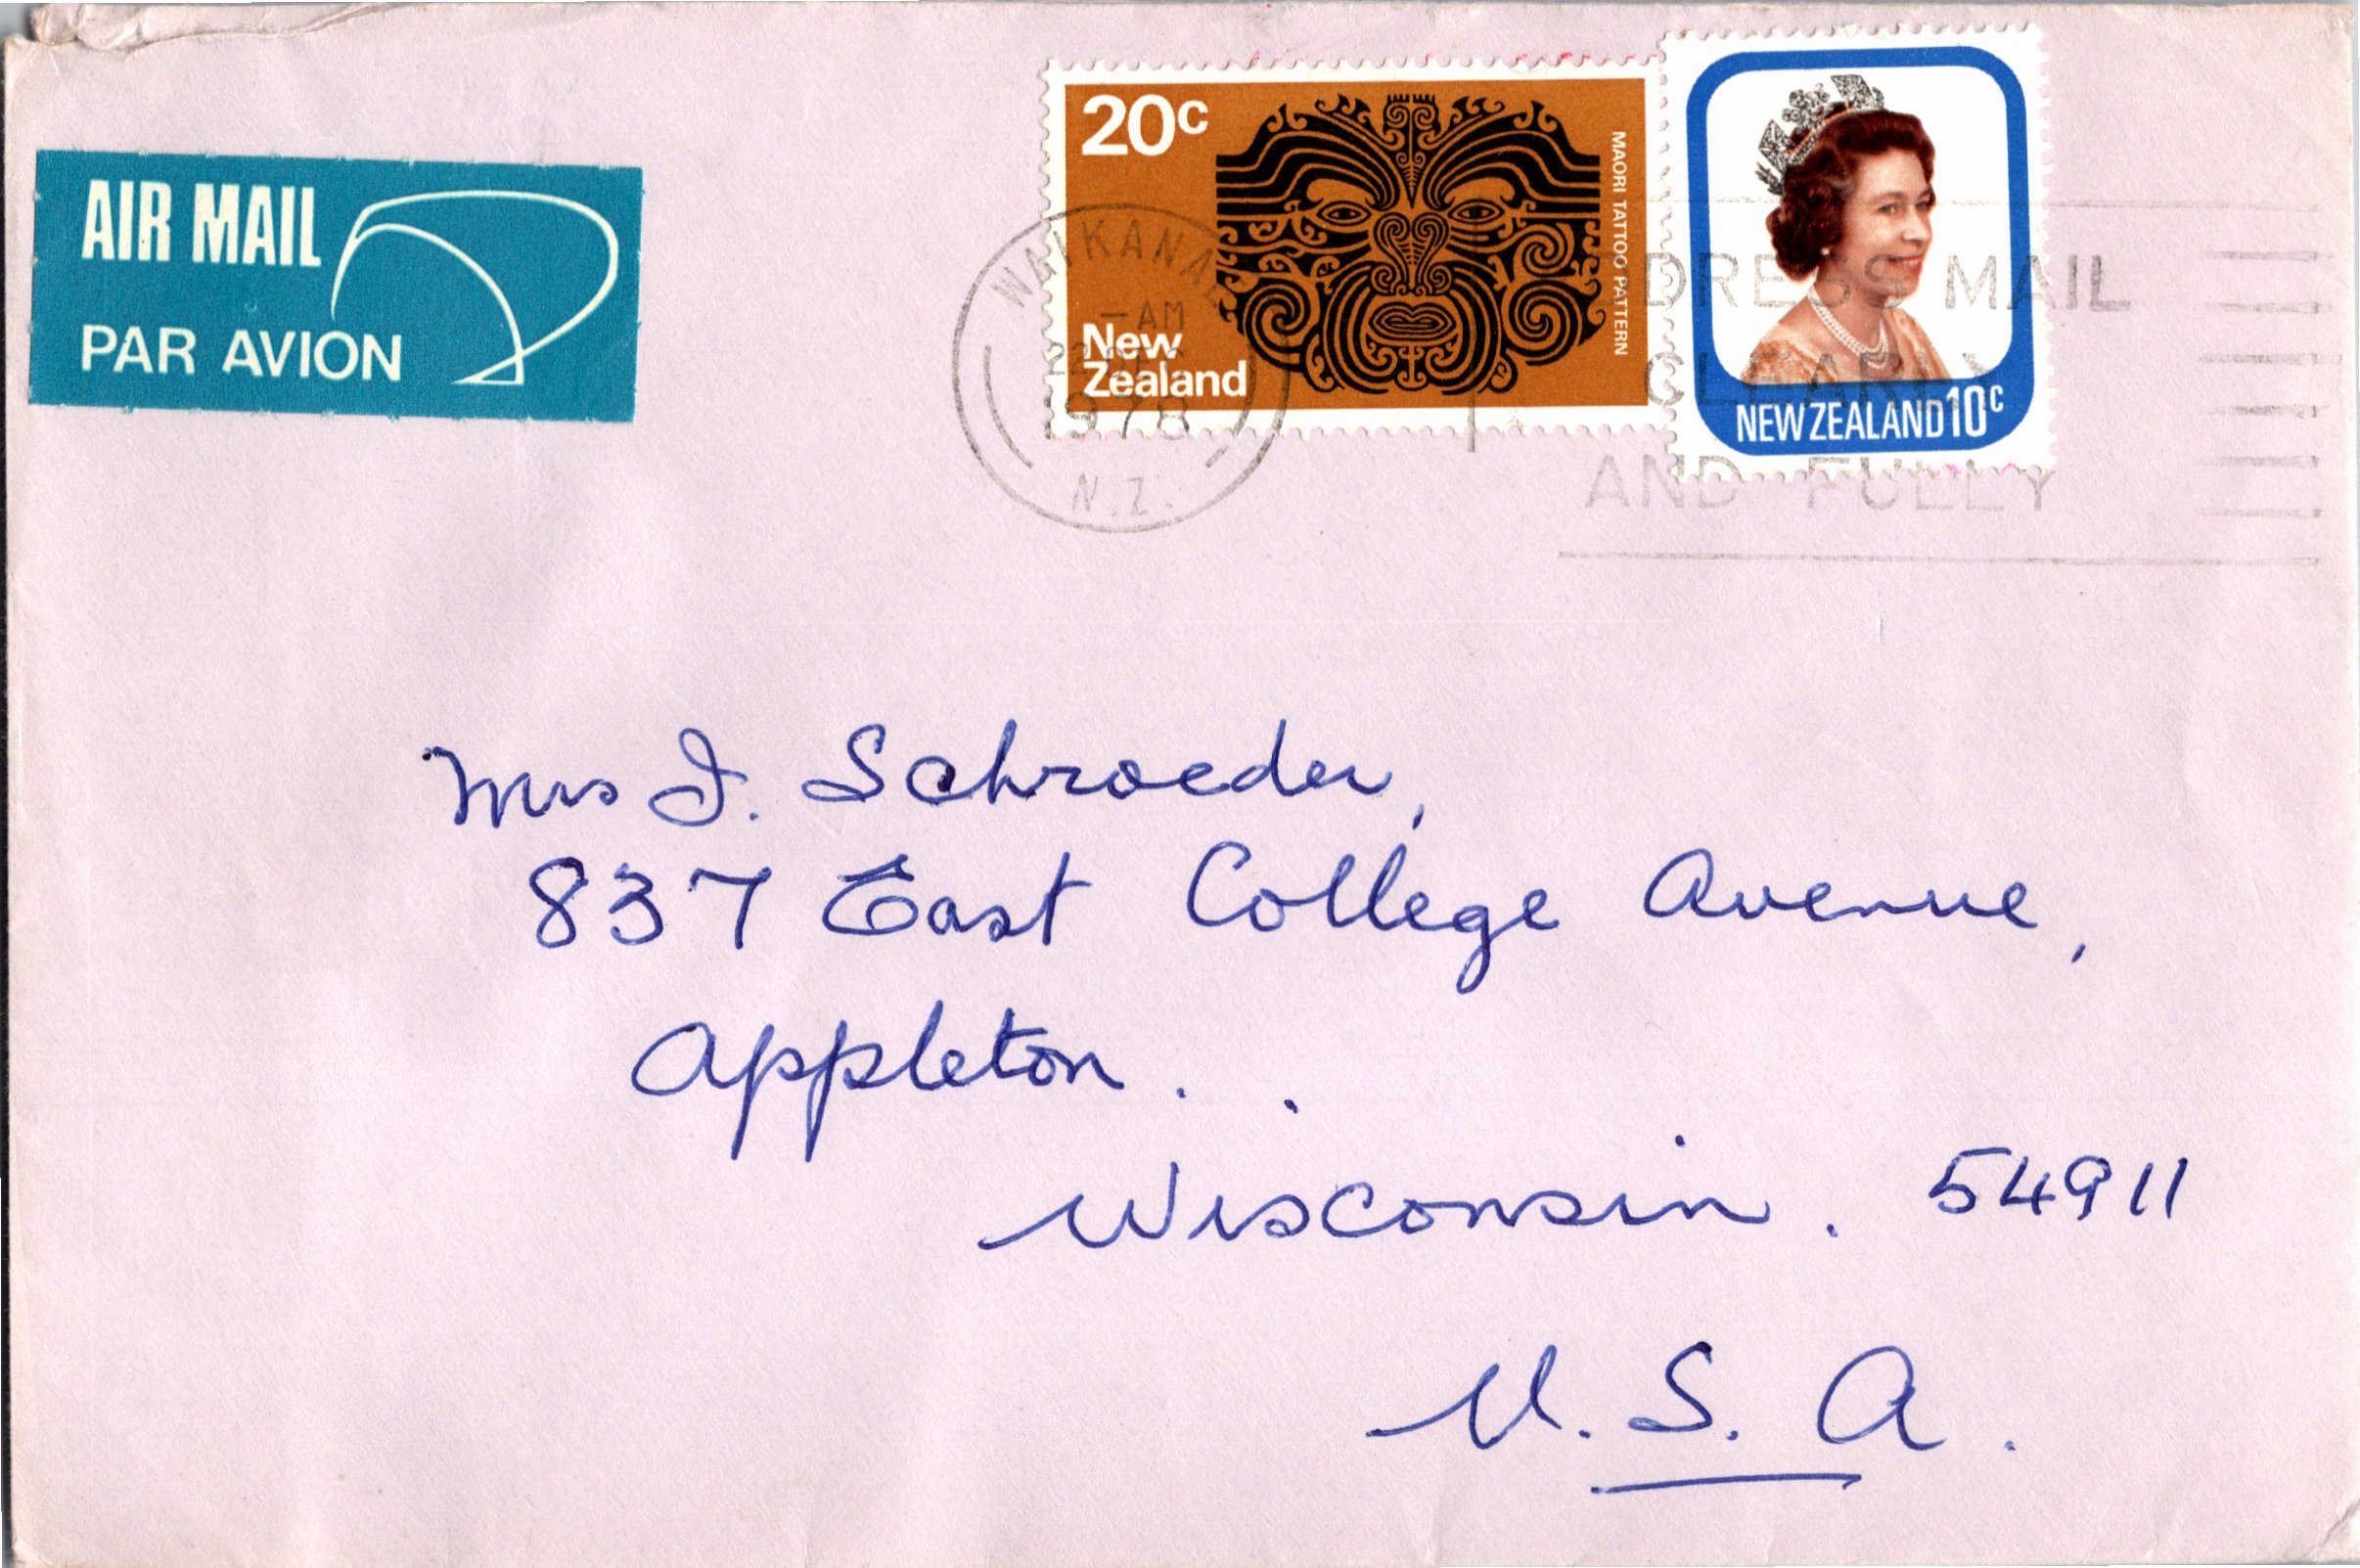 AIR MAIL
PAR AVION
20c
New
Zealand
MAORI TATTOO PATTERN
NEW ZEALAND 10c
WAIKANAE
-AM
1978
N.Z.
DRESS MAIL
CLEARLY
AND FULLY
Mrs I. Schroeder,
837 East College Avenue,
Appleton.
Wisconsin. 54911
U.S.A.